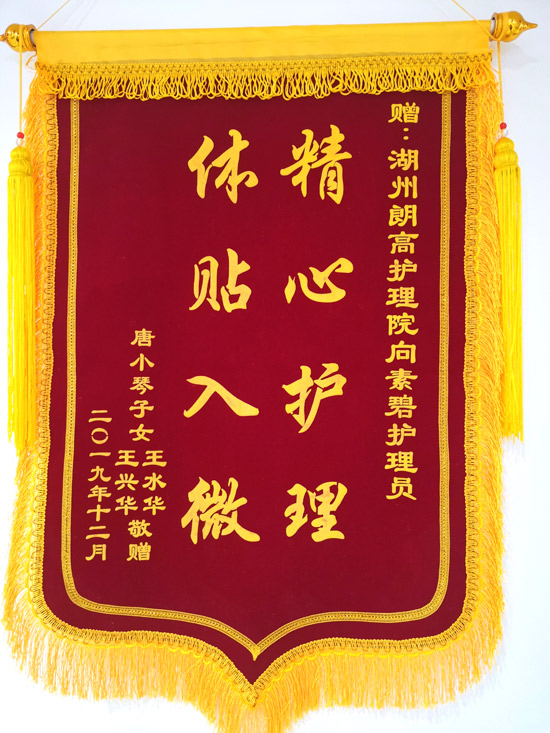 赠：湖州朗高护理院向素碧护理员
精心护理
体贴入微
唐小琴子女王水华
王兴华敬赠
二〇一九年十二月